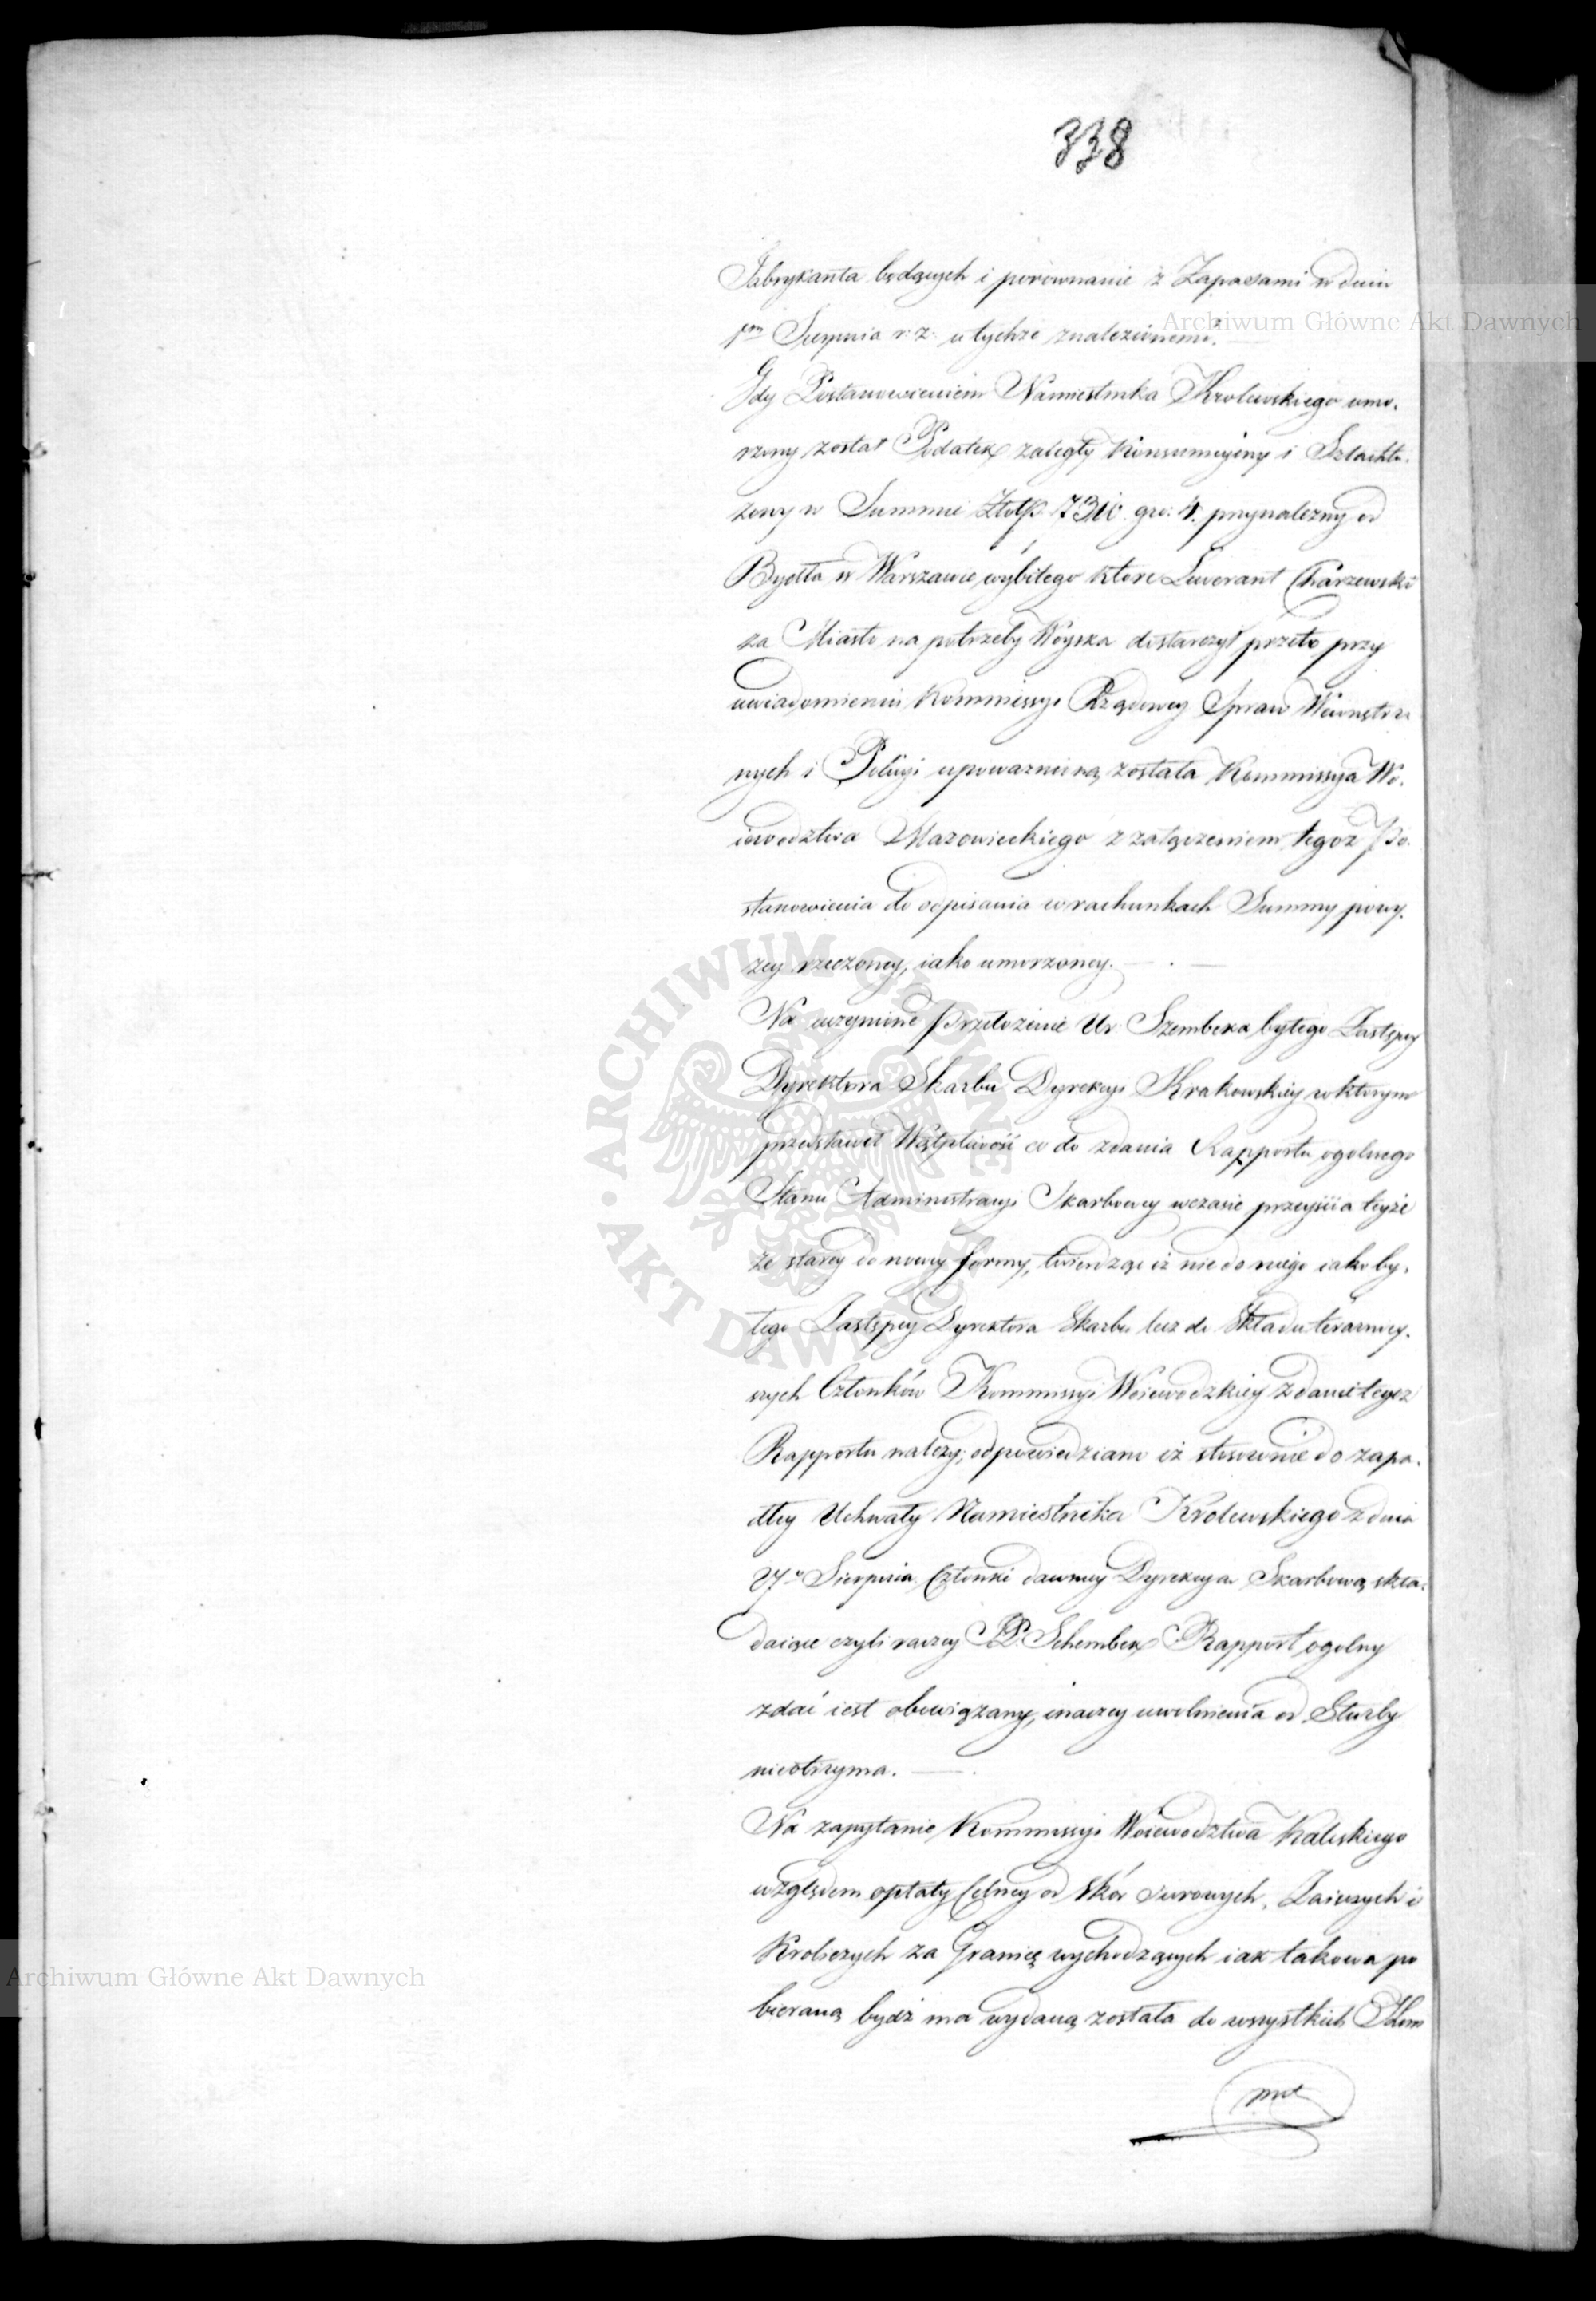 338
Fabrykanta będących i porównanie z Zapasami w dniu
1m Sierpnia r: z. u tychże znalezionemi.
Gdy Postanowieniem Namiestnika Krolewskiego umo-
rzony został Podatek zaległy Konsumcyiny i Szlachtu-
zowy w Summie Złotp. gro: 4. przynależny od
Bydła w Warszawie wybitego które Liwerant Charzewski
za Miasto na potrzeby Woyska dostarczył przeto przy
uwiadomieniu Kommissyi Rządowey Spraw Wewnętrz
nych i Policyi upoważnioną została Kommissya Wo-
iewodztwa Mazowieckiego z załączeniem tegoż Po-
stanowienia do odpisania w rachunkach Summy powy-
zey rzeczoney, iako umorzoney. — . —
Na uczynione Przełożenie Ur. Szembeka byłego Zastępcy
Dyrektora Skarbu Dyrekcyi Krakowskiey w ktorym
przedstawił Wątpliwość co do zdania Rapportu ogolnego
Stanu Administracyi Skarbowey w czasie przeyścia teyże
ze starey do nowey formy, twierdząc iż nie do niego iako by-
łego Zastępcy Dyrektora Skarbu lecz do Składu teraźniey-
szych Członków Kommissyi Woiewodzkiey zdanie tegoz
Rapportu należy, odpowiedziano iż stosownie do zapa-
dłey Uchwały Namiestnika Krolewskiego z dnia
Sierpnia Członki dawney Dyrekcya Skarbową skła-
daiące czyli raczey P. Schembek Rapport ogolny
zdać iest obowiązany, inaczey uwolnienia od Służby
nieotrzyma. — .
Na zapytanie Kommissyi Woiewodztwa Kaliskiego
względem opłaty Celney od skór surowych, Zaięczych i
Kroliczych za Granicę wychodzących iak takowa po
bieraną bydź ma wydaną została do wszystkich Kom
Archiwum Główne Akt Dawnych
Archiwum Główne Akt Dawnych
ARCHIWUM GŁÓWNE AKT DAWNYCH